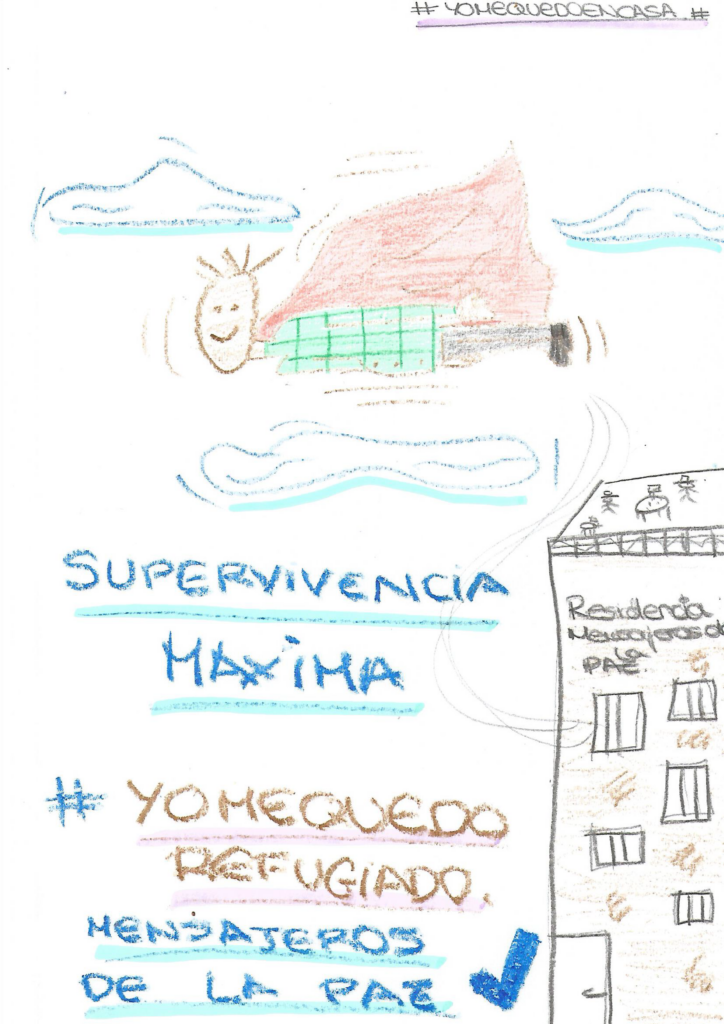 # YOMEQUEDOENCASA. #
SUPERVIVENCIA
MAXiMA
# YOMEQUEDO
REFUGiADO.
MENSAJEROS
DE LA PAZ
Residencia
Mensajeros de
La
PAZ